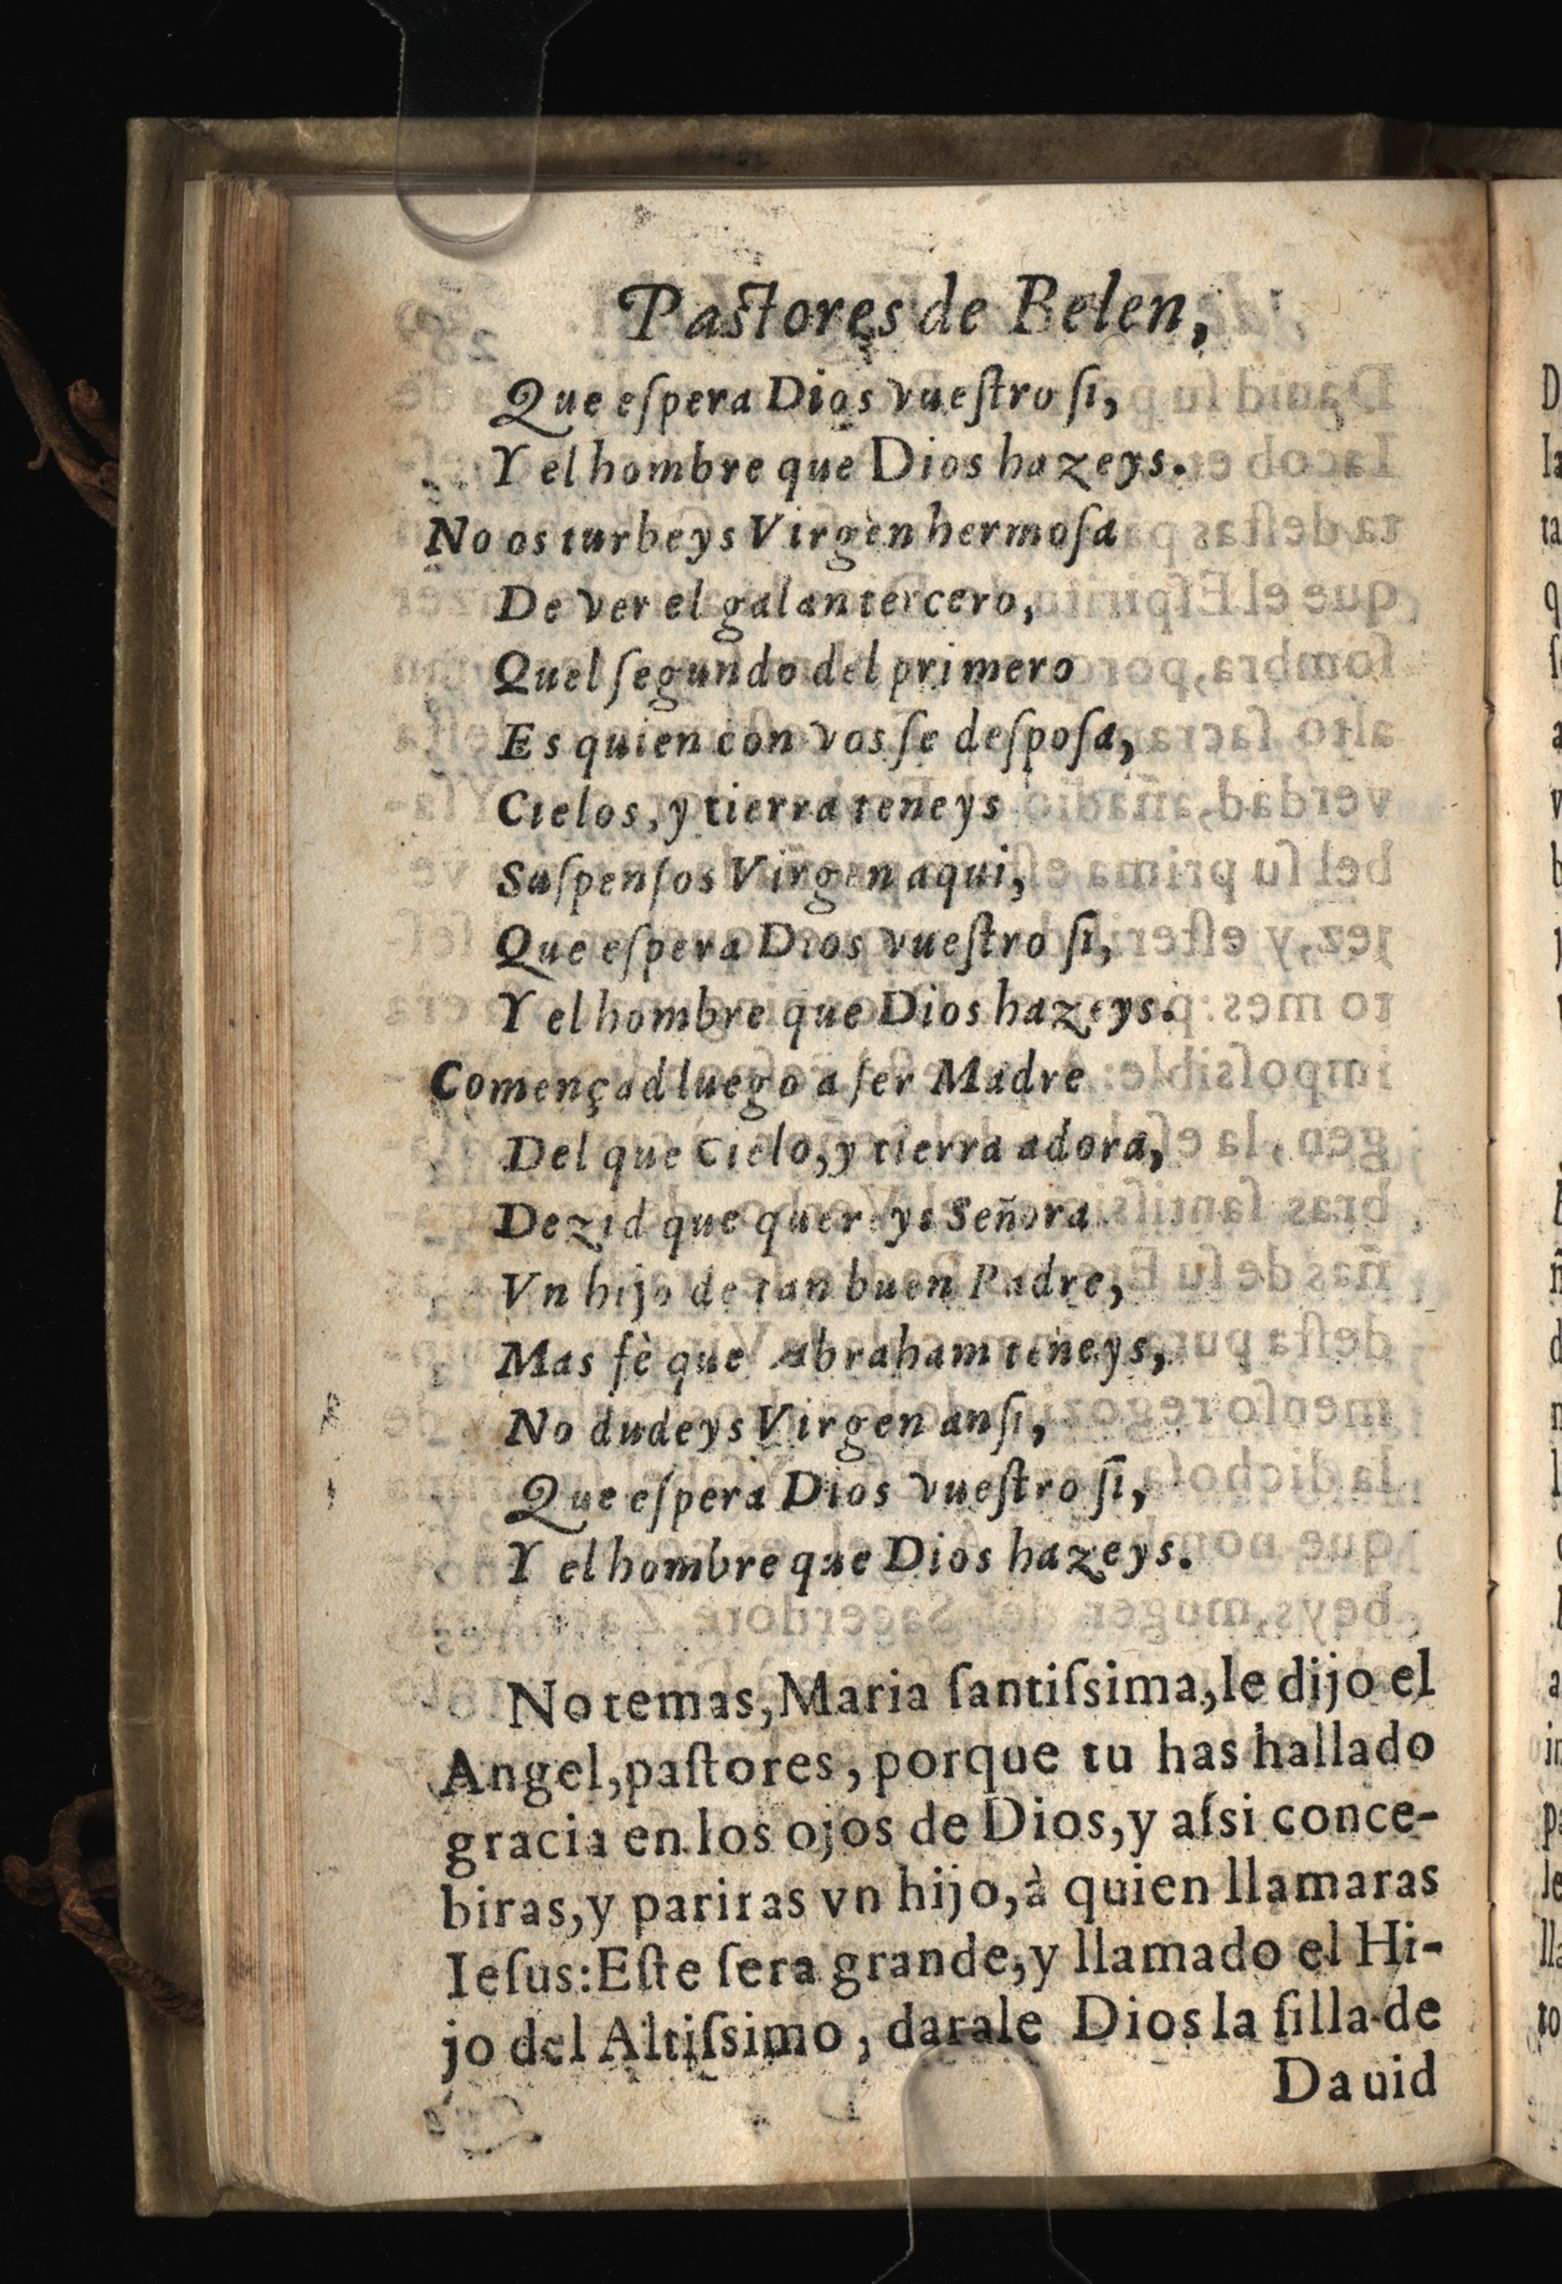 Pastores de Belen,
Que eſpera Dios vueſtro ſi,
Y el hombre que Dios hazeys.
No os turbeys Virgen hermoſa
De ver el galan tercero,
Quel ſegundo del primero
Es quien con vos ſe deſpoſa,
Cielos, y tierra teneys
Suſpenſos Virgen aqui,
Que eſpera Dios vueſtro ſi,
Y el hombre que Dios hazeys.
Començad luego a ſer Madre
Del que Cielo, y tierra adora,
Dezid que quereys Señora
Vn hijo de tan buen Padre,
Mas fè que Abraham teneys,
No dudeys Virgen anſi,
Que eſpera Dios vueſtro ſi,
Y el hombre que Dios hazeys.
No temas, Maria ſantiſsima, le dijo el
Angel, paſtores, porque tu has hallado
gracia en los ojos de Dios, y aſsi conce-
biras, y pariras vn hijo, à quien llamaras
Ieſus: Eſte ſera grande, y llamado el Hi-
jo del Altiſsimo, darale Dios la ſilla de
Dauid